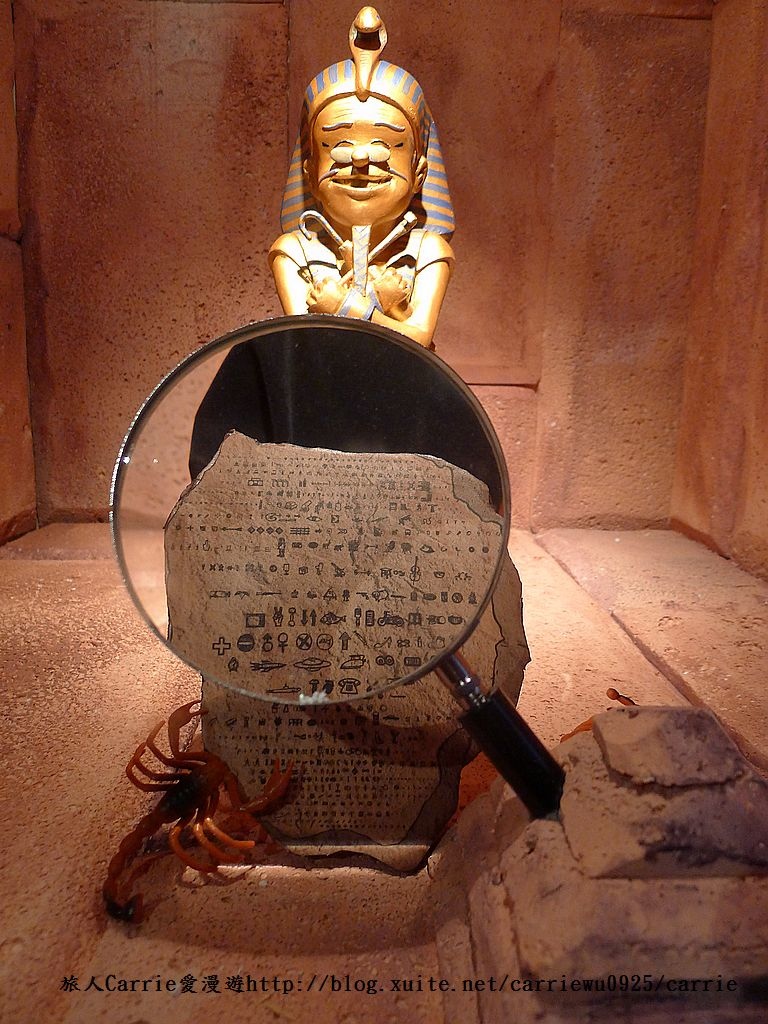 旅人Carrie愛漫遊http://blog.xuite.net/carriewu0925/carrie